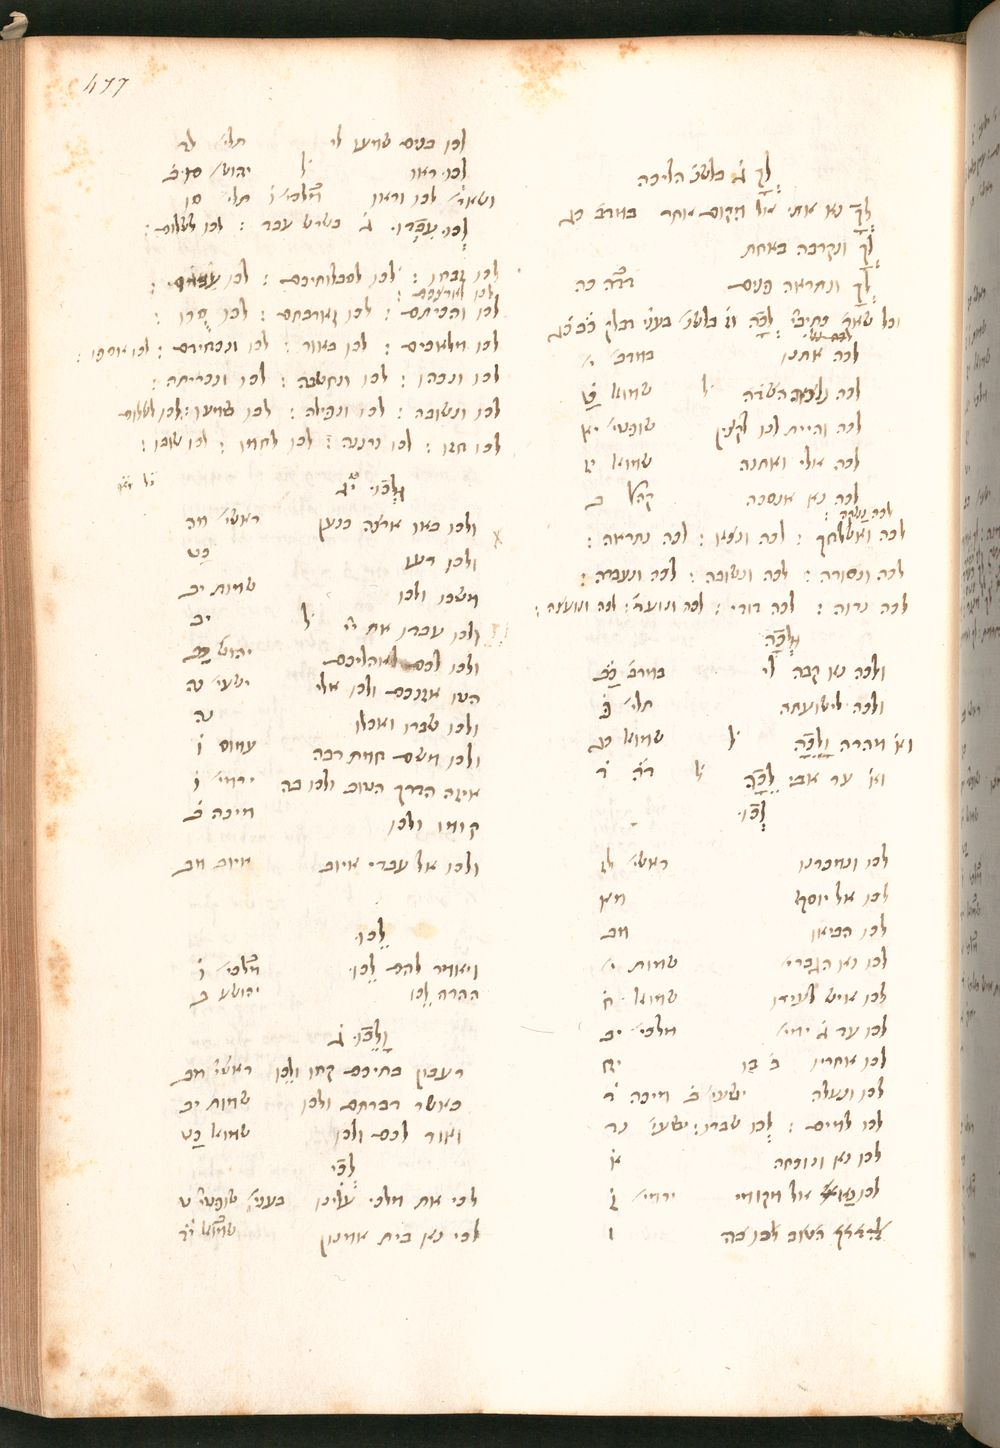 477
לך ג׳ בלשׁ׳ הליכה
לך נא אתי אל מקום אחר במדב׳ כג
לך ונקרבה באחת
לך ונתראה פנים
וכל שאר׳ כתיבי׳ לכה
לכה אתנו במדב׳ י׳
לכה ונעברה שמוא׳
לכה והיית לנו לקצין שופטי׳ יא
לכה אלי ואתנה שמוא׳ יז
לכה נא אנסכה קהל׳ ב
לכה ואשלחך : לכה ונצא : לכה נתראה :
לכה ונסורה : לכה ונשובה : לכה ונעברה :
לכה נרוה : לכה דודי : לכה ונועד : לכה ונועצה :
ולכה
ולכה נא קבה לי במדב׳
ולכה לישועתה תלי׳ פ
וא׳ מהרה ולכה ל׳ שמוא׳ כג
וא׳ עד אבי׳ לכה ל׳
לכו
לכו ונמכרנו ראשי׳ לז
לכו אל יוסף מא
לכו הביאו מב
לכו נא הגברי׳ שמות י׳
לכו איש לעירו שמוא׳ ח
לכו עד ג׳ ימי׳ מלכי׳ יב
לכו אחריו
לכו ונעלה ישעי׳ ב מיכה ד
לכו למים : לכו שברו : ישעי׳ נה
לכו נא ונוכחה א
לכו נא אל מקומי ירמי׳ ז
הדרך הטוב לכו בה ו
לכו בנים שמעו לי תלי׳ לד
לכו ראו ל׳ יהוש׳
ושאר׳ לכו וראו מלכי׳ ו תלי׳ סו
לכו עבדו ג׳ בשרש עבד : לכו לשלום :
לכו זבחו : לכו לסבלותיכם : לכו
לכו לארצכם :
לכו והכיתם : לכו וארבתם : לכו סרו :
לכו מלאכים : לכו באור : לכו ונפילם : לכו אספו :
לכו ונכהו : לכו ונחשבה : לכו ונכריתה :
לכו ונשובה : לכו ונפילה : לכו שמעו : לכו לשלום
לכו חזו : לכו נרננה : לכו לחמו : לכו שובו :
ולכו יג
ולכו באו ארצה כנען ראשי׳ מה
ולכו רעו כט
משכו ולכו שמות יב
ולכו עבדו את יי׳ ל׳ יב
ולכו לכם לאהליכם יהוש׳ כב
הטו אזנכם ולכו אלי ישעי׳ נה
ולכו שברו ואכלו נה
ולכו משם חמת רבה עמוס ו
איזה הדרך הטוב ולכו בה ירמי׳ ו
קומו ולכו מיכה ב
ולכו אל עבדי איוב איוב מב
לכו
ויאמר להם לכו מלכי׳ ו
ההרה לכו יהושע ב
ולכו ג
רעבון בתיכם קחו ולכו ראשי׳ מב
כאשר דברתם ולכו שמות יב
ואור לכם ולכו שמוא׳ כט
לכי
לכי את מלכי עלינו בעני׳ שופטי׳ ט
לכי נא בית אמנון שמוא׳ יג